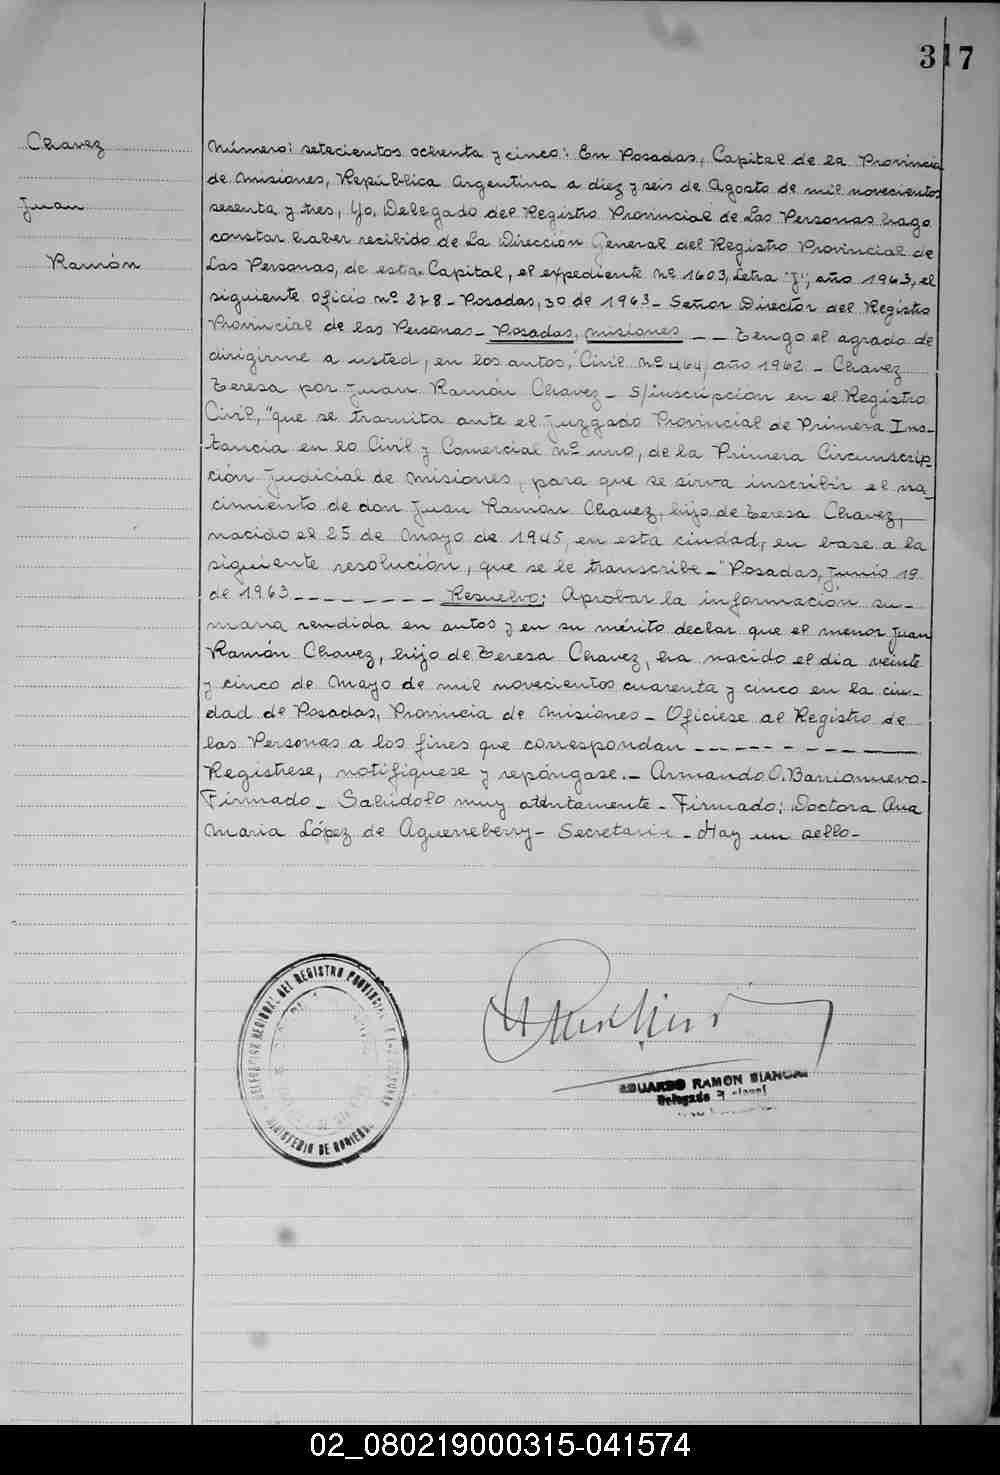 317
Chavez
Juan
Ramón
Número: setecientos ochenta y cinco: En Posadas, Capital de la Provincia
de Misiones, República Argentina a diez y seis de Agosto de mil novecientos
sesenta y tres, Yo, Delegado del Registro Provincial de Las Personas hago
constar haber recibido de La Dirección General del Registro Provincial de
Las Personas, de esta Capital, el expediente Nº 1603, Letra "J", año 1963, el
siguiente oficio nº 278 - Posadas, 30 de 1963 - Señor Director del Registro
Provincial de las Personas - Posadas, Misiones - - Tengo el agrado de
dirigirme a usted, en los autos, "Civil Nº 464, año 1962 - Chavez
Teresa por Juan Ramón Chavez - S/inscripción en el Registro
Civil," que se tramita ante el Juzgado Provincial de Primera Ins-
tancia en lo Civil y Comercial nº uno, de la Primera Circunscrip-
ción Judicial de Misiones, para que se sirva inscribir el na-
cimiento de don Juan Ramón Chavez, hijo de Teresa Chavez,
nacido el 25 de Mayo de 1945, en esta ciudad, en base a la
siguiente resolución, que se le transcribe - "Posadas, Junio 19
de 1963 - - - - - - - - Resuelvo: Aprobar la información su-
maria rendida en autos y en su mérito declar que el menor Juan
Ramón Chavez, hijo de Teresa Chavez, ha nacido el día veinte
y cinco de Mayo de mil novecientos cuarenta y cinco en la ciu-
dad de Posadas, Provincia de Misiones - Ofíciese al Registro de
las Personas a los fines que correspondan - - - - - - - -
Regístrese, notifíquese y repóngase. - Armando O. Barrionuevo -
Firmado - Salúdolo muy atentamente - Firmado: Doctora Ana
María López de Aguerreberry - Secretaria - Hay un sello -
DELEGACION REGIONAL DEL REGISTRO PROVINCIAL DE LAS PERSONAS
MINISTERIO DE GOBIERNO
EDUARDO RAMON BIANCHI
Delegado
02_080219000315-041574